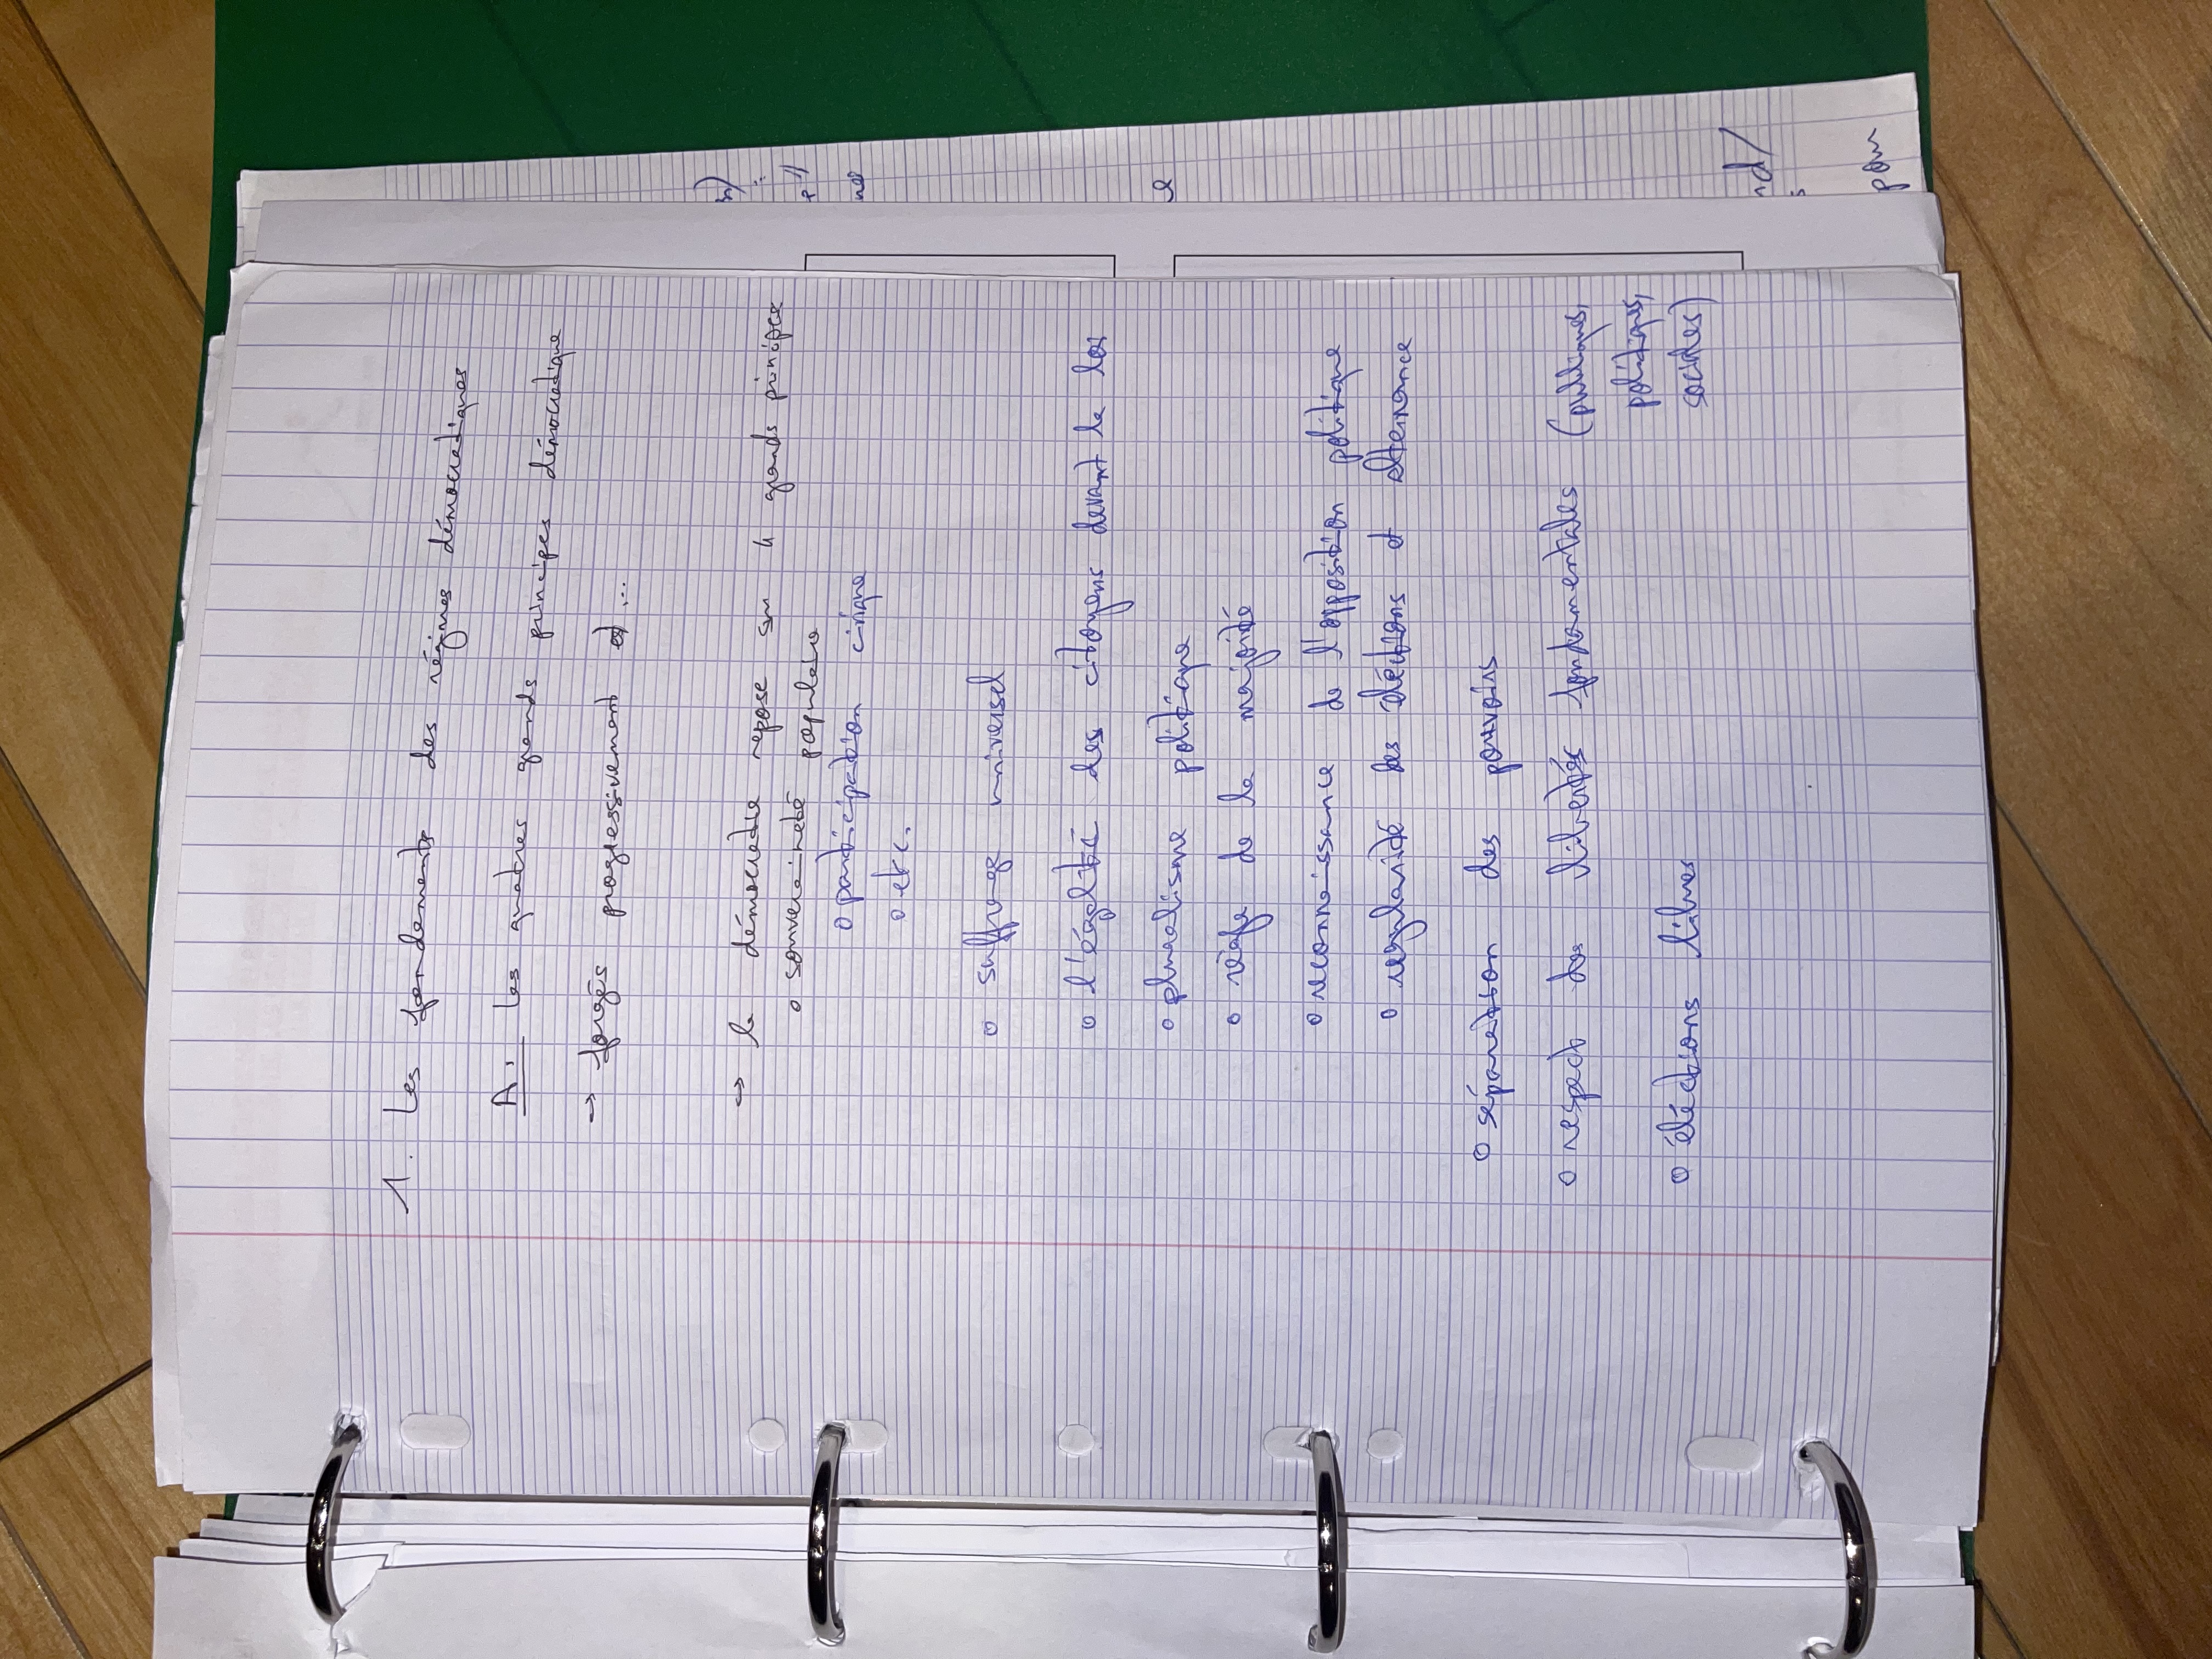 1. Les fondements des régimes démocratiques
A. Les quatres grands principes démocratique
→ forgés progressivement et ...
→ la démocratie repose sur 4 grands principes
o souveraineté populaire
o participation civique
o etc.
o suffrage universel
o l'égalité des citoyens devant la loi
o pluralisme politique
o règle de la majorité
o reconnaissance de l'opposition politique
o régularité des élections et alternance
o séparation des pouvoirs
o respect des libertés fondamentales (publiques,
politiques,
sociales)
o élections libres
e
nd/
s
pour